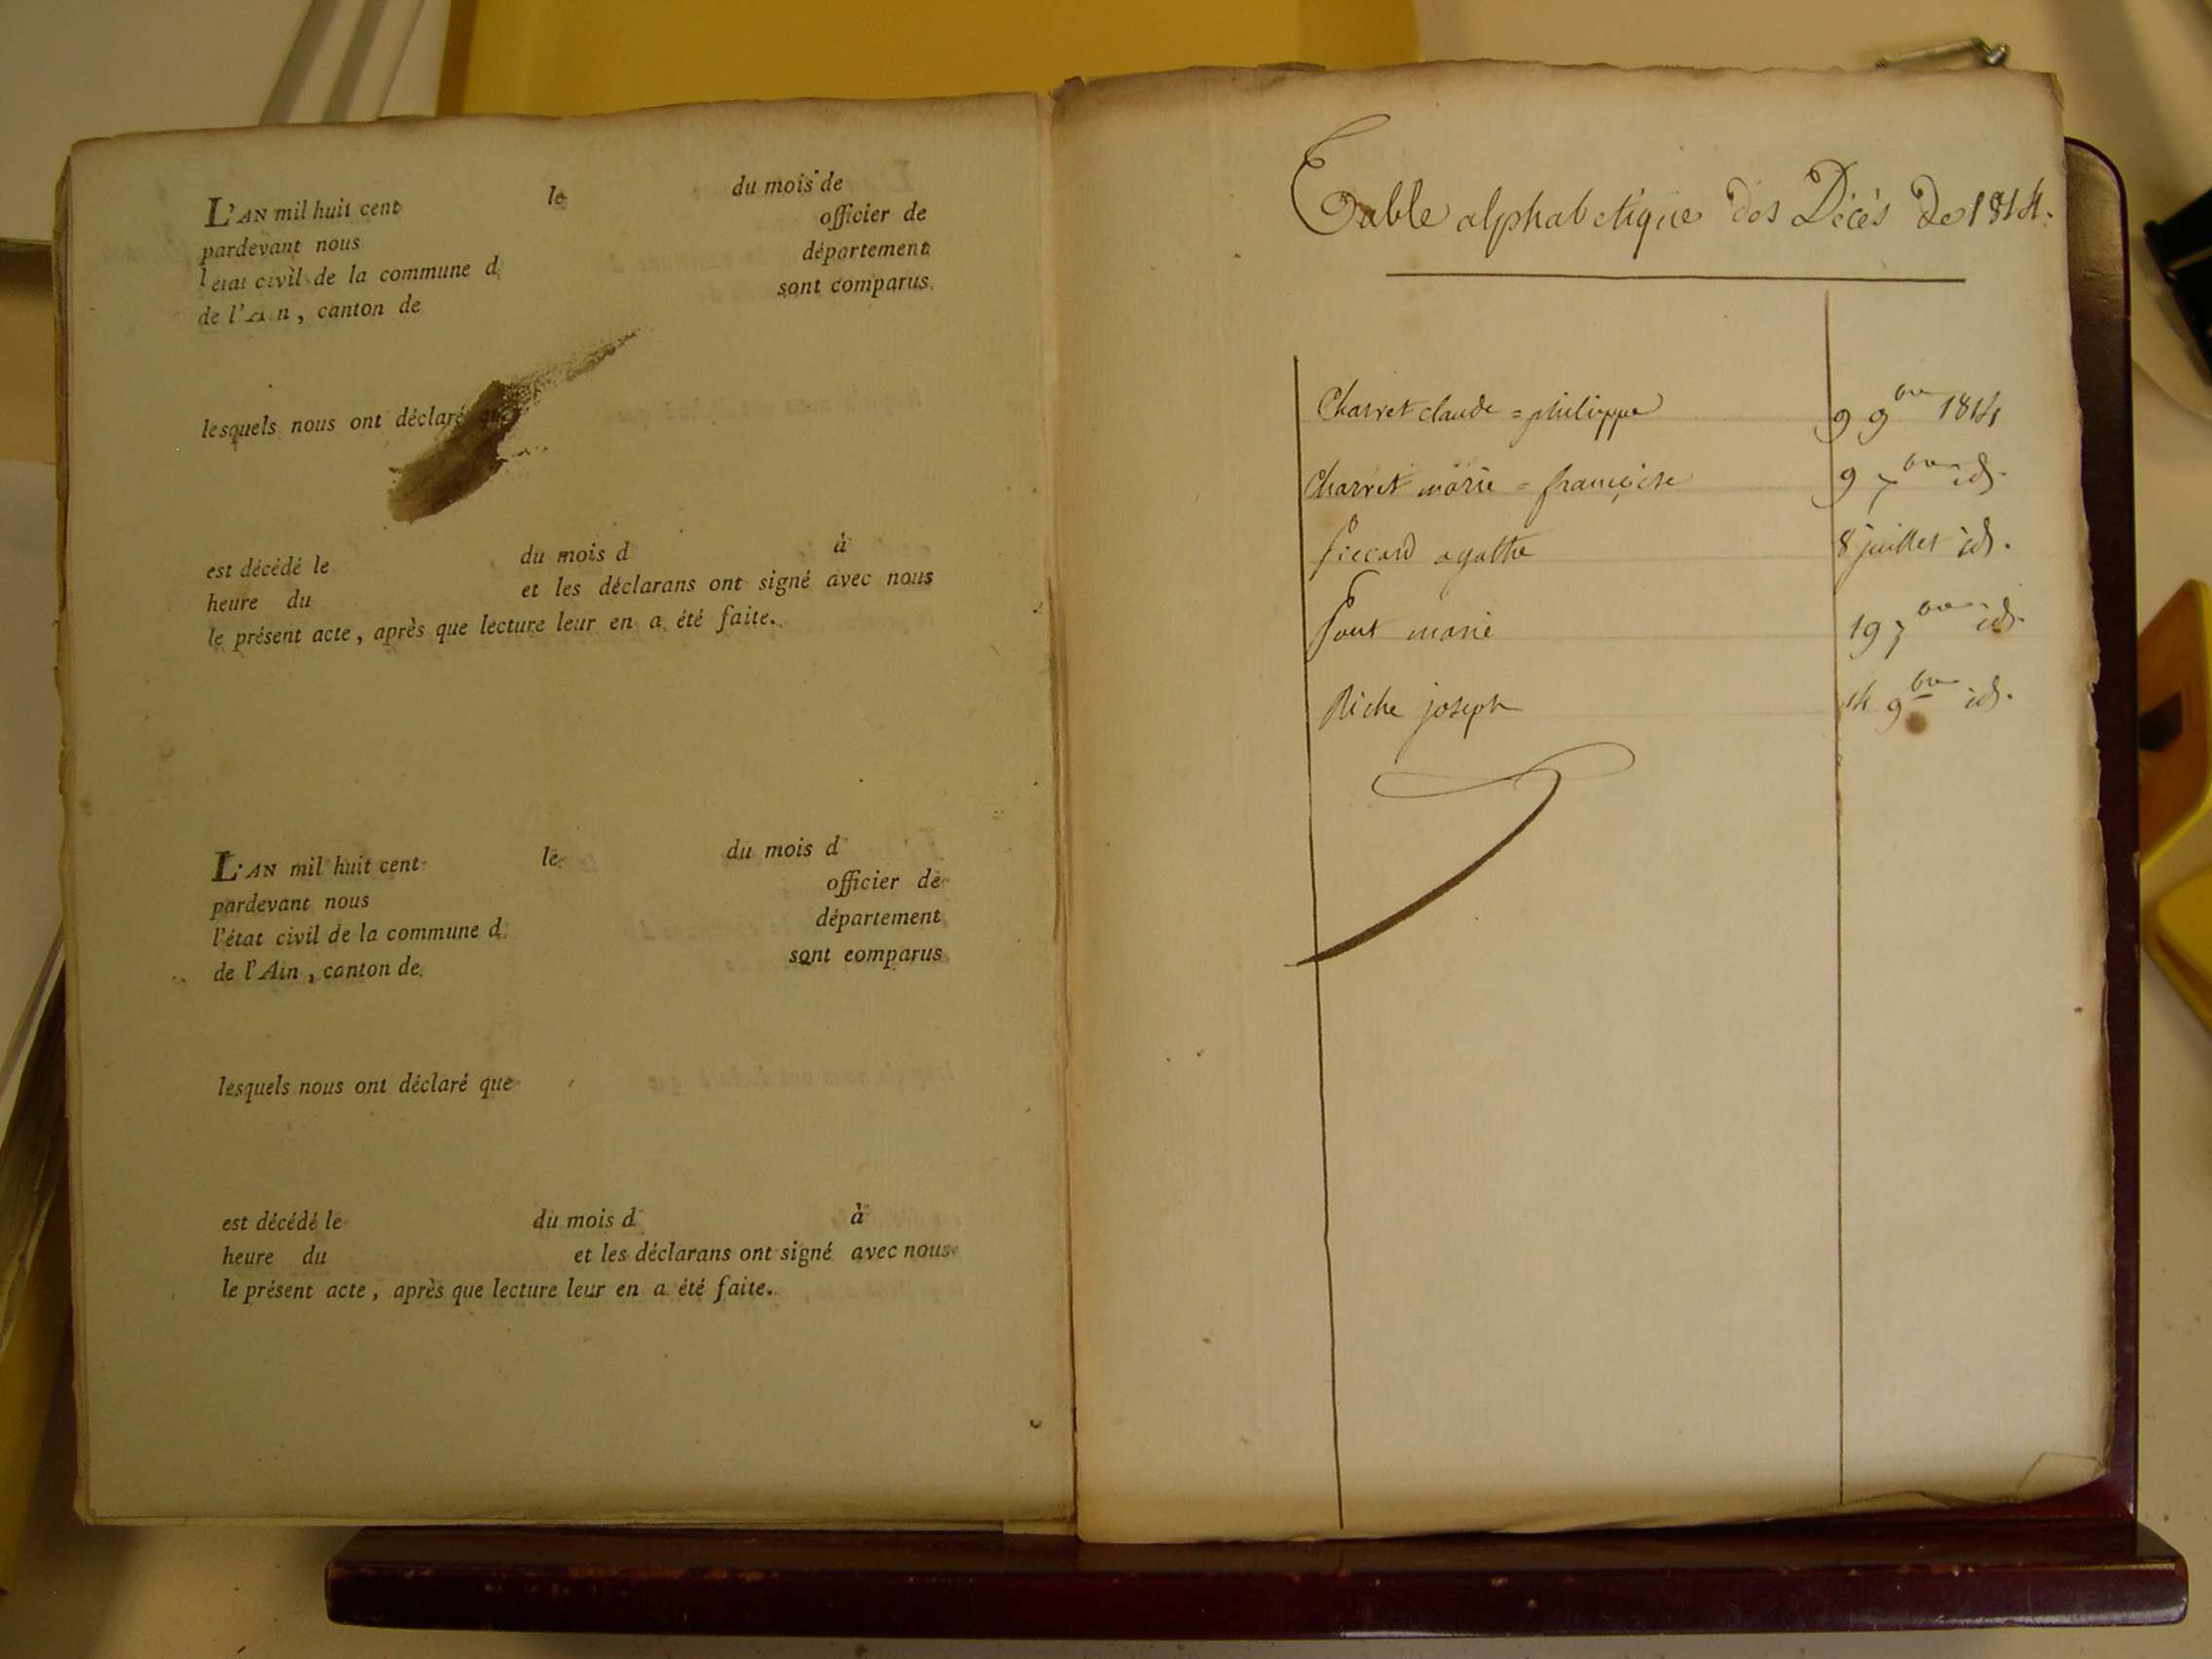 L'AN mil huit cent le du mois de
pardevant nous officier de
l'état civil de la commune d département
de l'Ain, canton de sont comparus
lesquels nous ont déclaré que
est décédé le du mois d à
heure du et les déclarans ont signé avec nous
le présent acte, après que lecture leur en a été faite.
L'AN mil huit cent le du mois d
pardevant nous officier de
l'état civil de la commune d département
de l'Ain, canton de sont comparus
lesquels nous ont déclaré que
est décédé le du mois d à
heure du et les déclarans ont signé avec nous
le présent acte, après que lecture leur en a été faite.
Table alphabetique des Décès de 1814.
Charret claude = philippe 9 9bre 1814
Charret marie = françoise 9 7bre id.
agathe 8 juillet id.
marie 19 7bre id.
Riche joseph 14 9bre id.